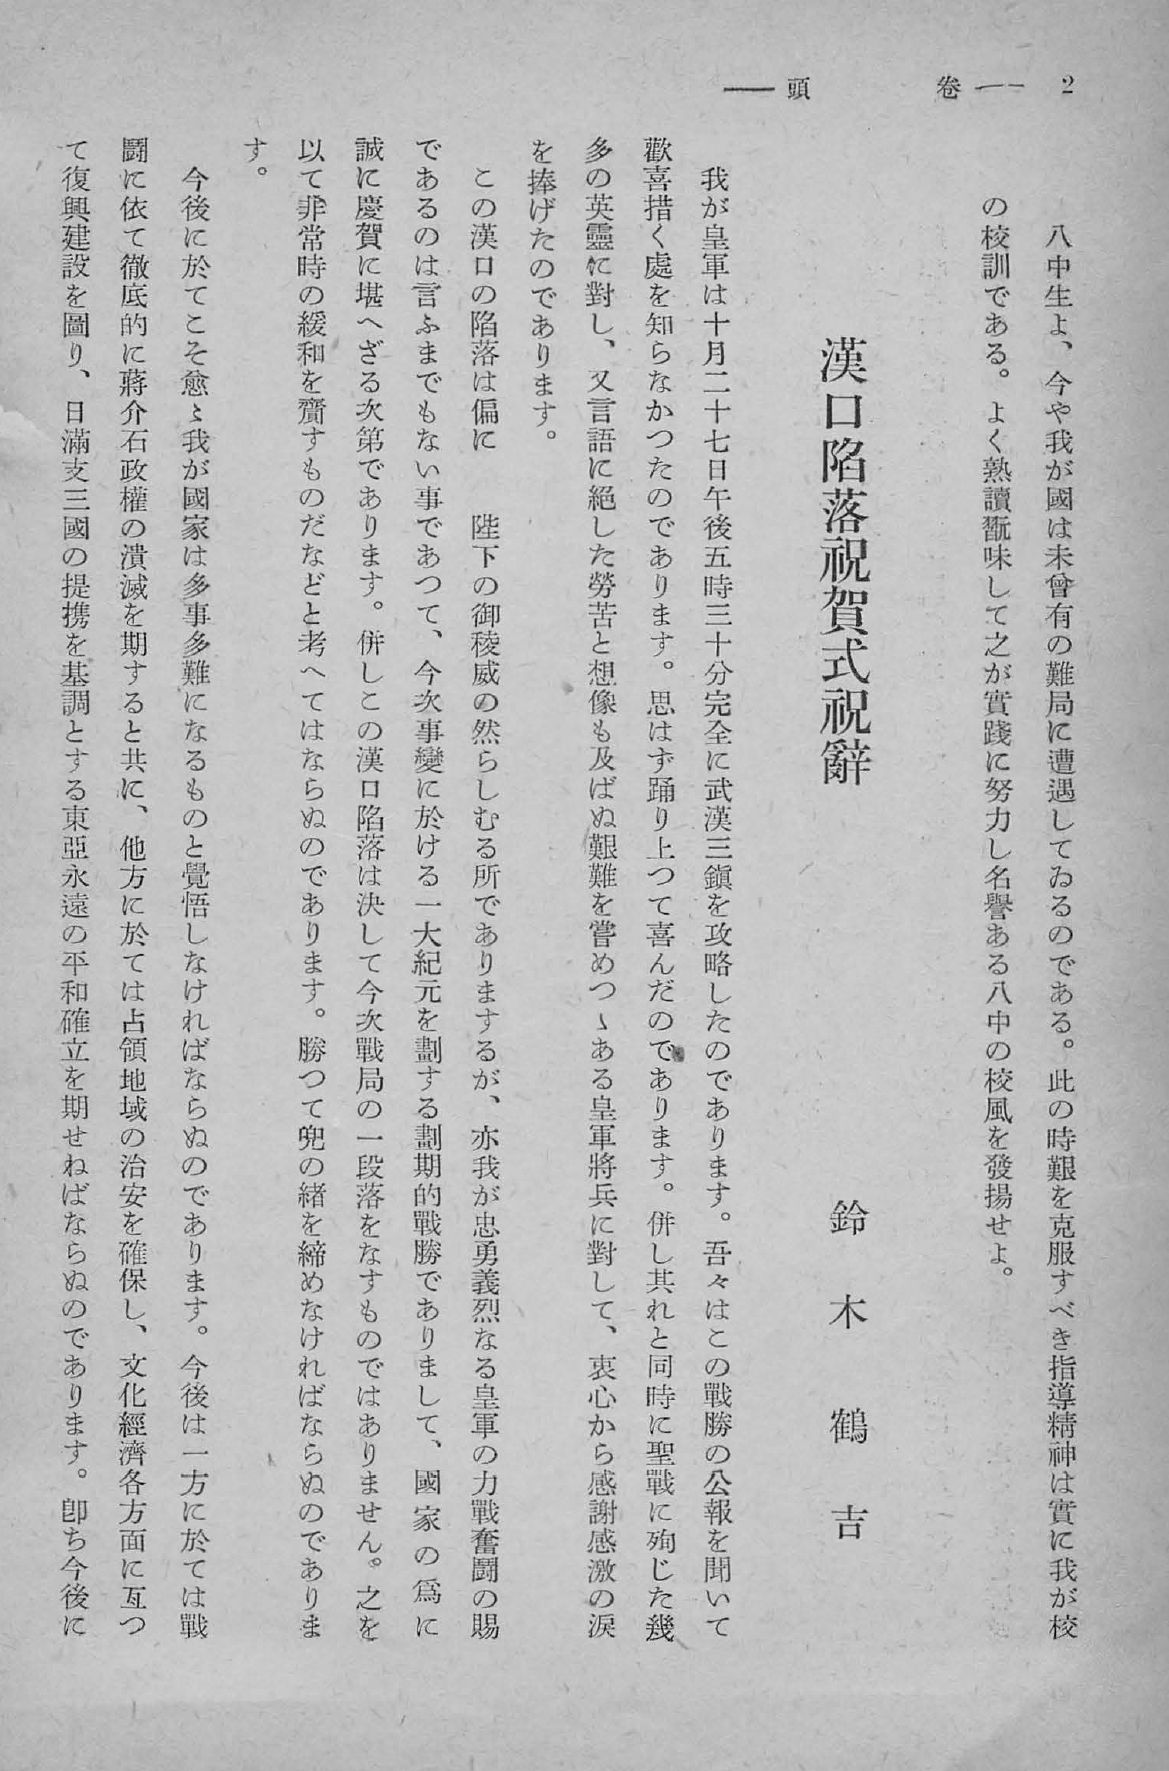 2 ──卷頭──
八中生よ、今や我が國は未曾有の難局に遭遇してゐるのである。此の時艱を克服すべき指導精神は實に我が校
の校訓である。よく熟讀翫味して之が實踐に努力し名譽ある八中の校風を發揚せよ。
漢口陷落祝賀式祝辭
鈴木鶴吉
我が皇軍は十月二十七日午後五時三十分完全に武漢三鎭を攻略したのであります。吾々はこの戰勝の公報を聞いて
歡喜措く處を知らなかつたのであります。思はず踊り上つて喜んだのであります。併し其れと同時に聖戰に殉じた幾
多の英靈に對し、又言語に絕した勞苦と想像も及ばぬ艱難を嘗めつゝある皇軍將兵に對して、衷心から感謝感激の淚
を捧げたのであります。
この漢口の陷落は偏に　陛下の御稜威の然らしむる所でありまするが、亦我が忠勇義烈なる皇軍の力戰奮鬪の賜
であるのは言ふまでもない事であつて、今次事變に於ける一大紀元を劃する劃期的戰勝でありまして、國家の爲に
誠に慶賀に堪へざる次第であります。併しこの漢口陷落は決して今次戰局の一段落をなすものではありません。之を
以て非常時の緩和を齎すものだなどと考へてはならぬのであります。勝つて兜の緒を締めなければならぬのでありま
す。
今後に於てこそ愈〻我が國家は多事多難になるものと覺悟しなければならぬのであります。今後は一方に於ては戰
鬪に依て徹底的に蔣介石政權の潰滅を期すると共に、他方に於ては占領地域の治安を確保し、文化經濟各方面に亙つ
て復興建設を圖り、日滿支三國の提携を基調とする東亞永遠の平和確立を期せねばならぬのであります。卽ち今後に